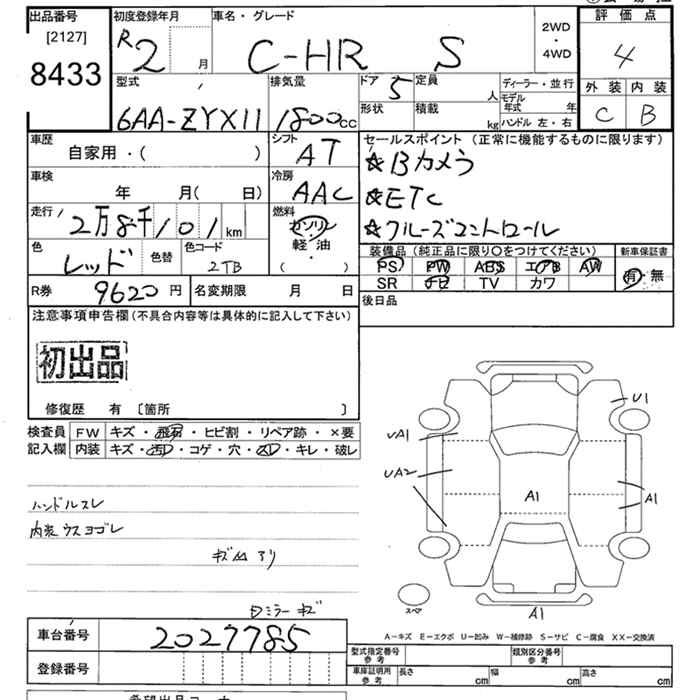 出品番号
[2127]
8433
初度登録年月
R2 月
車名・グレード
C-HR S
2WD
・
4WD
評価点
4
外装 内装
C B
型式
6AA-ZYX11
排気量
1800cc
ドア 5
定員 人
形状
積載 kg
ディーラー・並行
モデル年式 年
ハンドル 左・右
車歴
自家用・( )
シフト
AT
車検
年 月( 日)
冷房
AAC
走行
2万8千101km
燃料
ガソリン
軽油
( ・ )
色
レッド
色替
色コード
2TB
R券 9620円
名変期限 月 日
セールスポイント (正常に機能するものに限ります)
☆Bカメラ
☆ETC
☆クルーズコントロール
装備品 (純正品に限り〇をつけてください)
PS PW ABS エアB AW
SR ナビ TV カワ
新車保証書
有・無
後日品
注意事項申告欄(不具合内容等は具体的に記入して下さい)
初出品
修復歴 有 〔箇所 〕
検査員 FW キズ・飛石・ヒビ割・リペア跡・×要
記入欄 内装 キズ・汚レ・コゲ・穴・スレ・キレ・破レ
ハンドルスレ
内装ウスヨゴレ
キズ凹アリ
ミラーキズ
U1
UA1
UA2
A1
A1
A1
スペア
A－キズ E－エクボ U－凹み W－補修跡 S－サビ C－腐食 XX－交換済
車台番号 2027785
登録番号
型式指定番号
参考
類別区分番号
参考
車庫証明用
参考
長さ cm
幅 cm
高さ cm